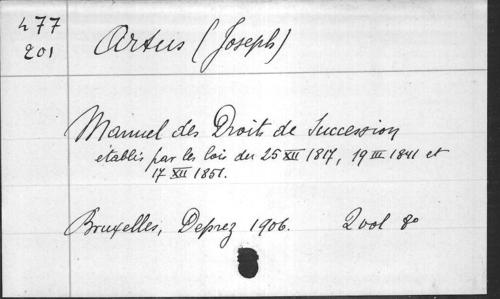 477
201
Artus (Joseph)
Manuel des Droits de Succession
établis par les lois du 25 XII 1817, 19 III 1841 et
17 XII 1851.
Bruxelles, Deprez 1906. 2 vol 8°